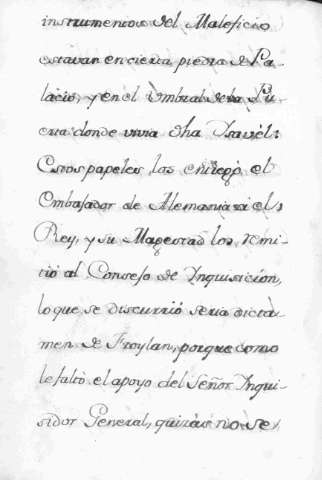 instrumentos del Maleficio
estavan en cierta piedra de Pa-
lacio, y en el Umbral de la Pu-
erta donde vivia dha Isavél:
Estos papeles los entregó el
Embajador de Alemania el
Rey, y su Magestad los remi-
tió al Consejo de Inquisición,
lo que se discurrió seria dicta-
men de Froylan, porque como
le faltó el apoyo del Señor Inqui-
sidor General, quizás no se